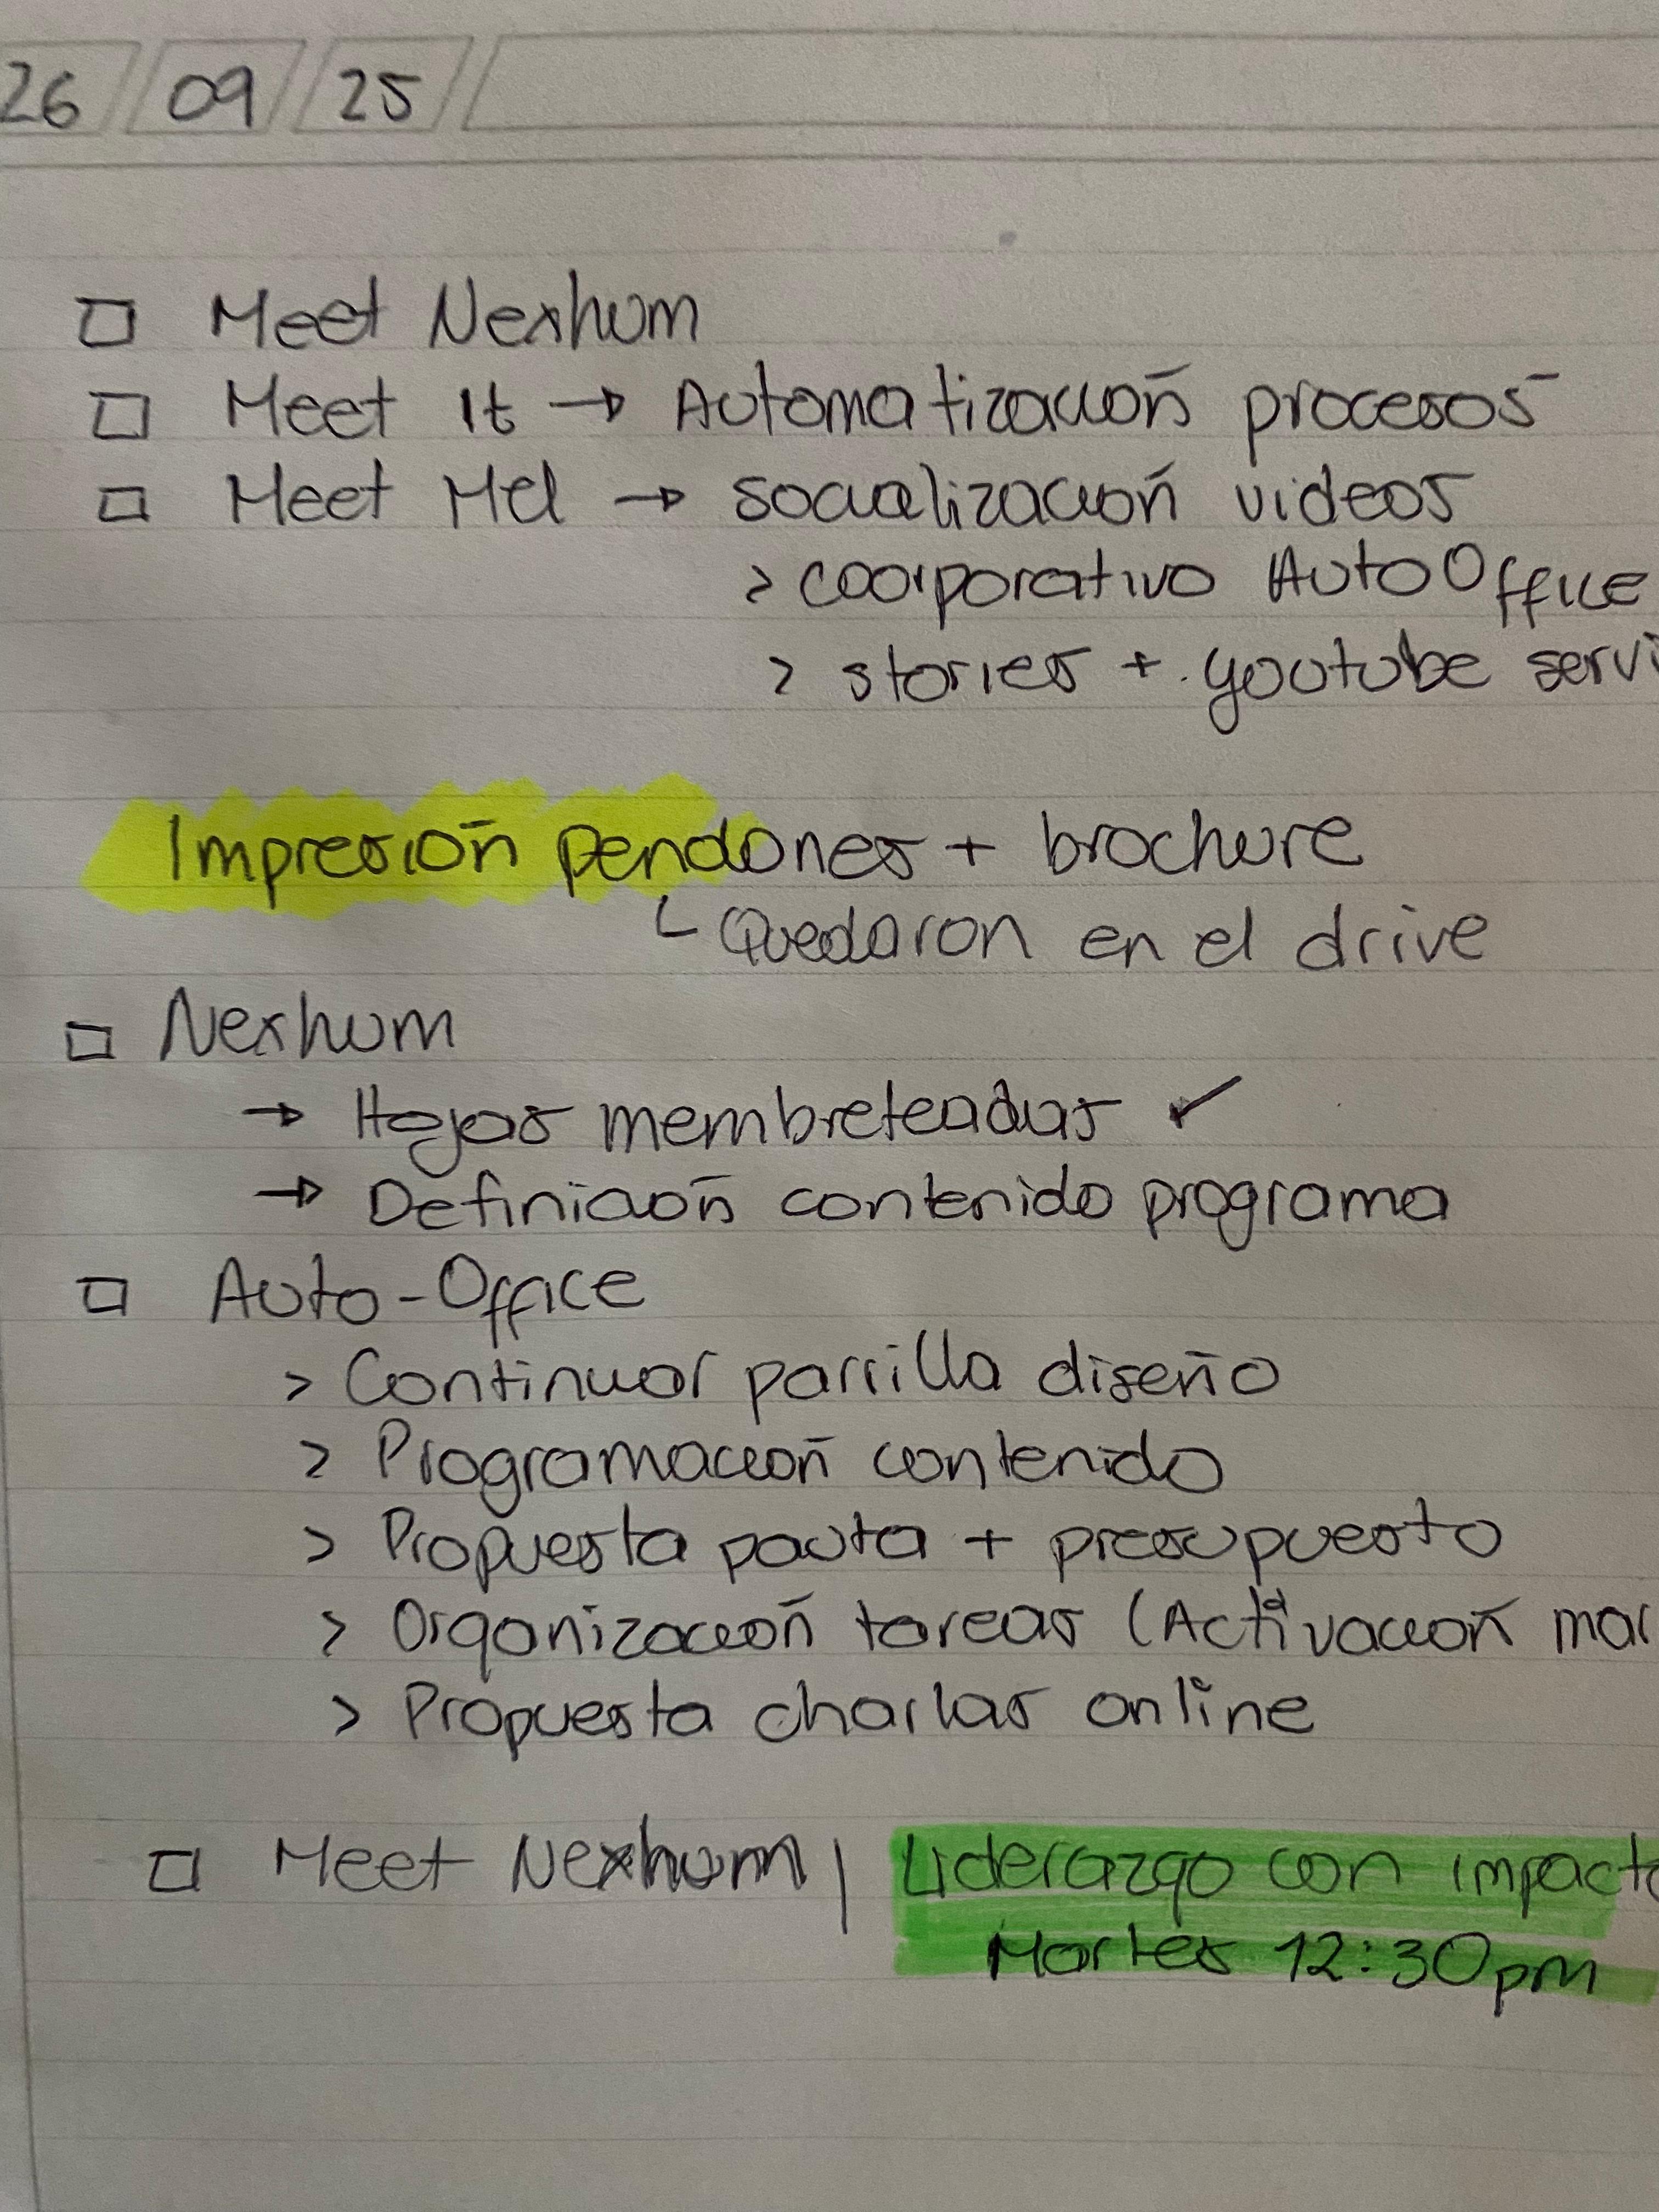 26 / 09 / 25
☐ Meet Nexhum
☐ Meet It → Automatización procesos
☐ Meet Mel → socialización videos
> coorporativo AutoOffice
> stories + youtube servi
Impresión pendones + brochure
Quedaron en el drive
☐ Nexhum
→ Hojas membreteadas ✓
→ Definición contenido programa
☐ Auto-Office
> Continuar parrilla diseño
> Programación contenido
> Propuesta pauta + presupuesto
> Organización tareas (Activación mar
> Propuesta charlas online
☐ Meet Nexhum | Liderazgo con impacto
Martes 12:30pm